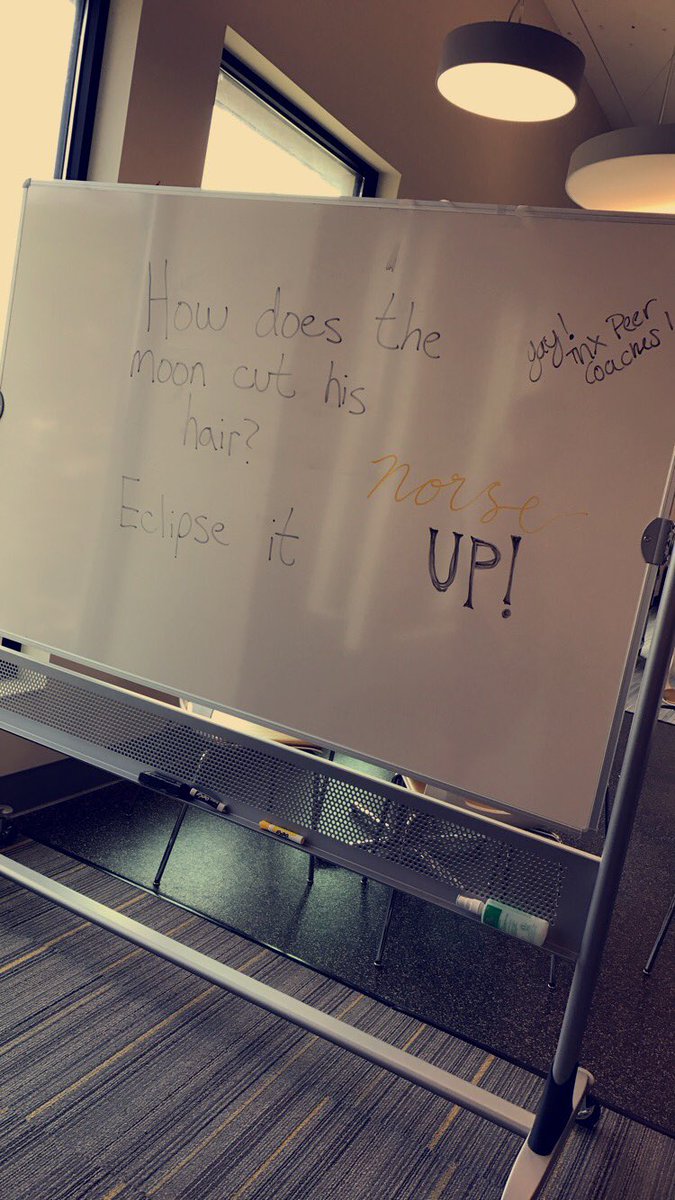 How does the
moon cut his
hair?
Eclipse it
yay!
Thx Peer
coaches!
norse
UP!